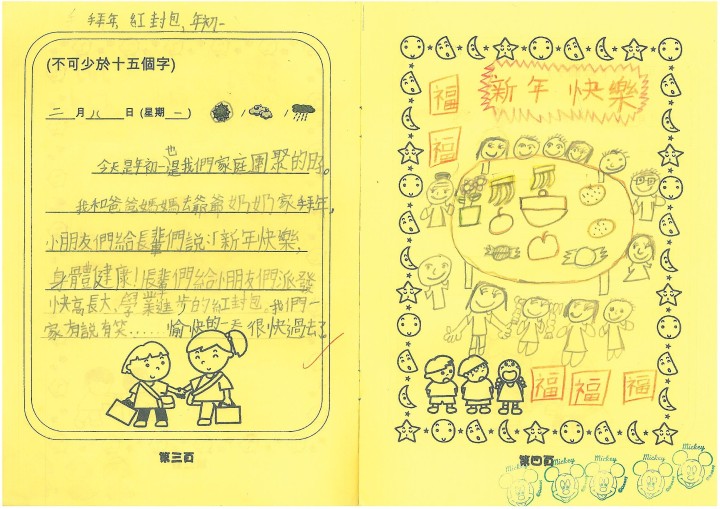 拜年, 紅封包, 年初一
(不可少於十五個字)
二 月 八 日 (星期 一 ) / /
也
今天是年初一是我們家庭團聚的
我和爸爸媽媽去爺爺奶奶家拜年,
小朋友們給長輩們說:「新年快樂,
身體健康!長輩們給小朋友們派發
快高長大、學業進步的紅封包。我們一
家有說有笑......愉快的一天很快過去了
第三頁
新年快樂
福
福
福 福 福
第四頁
Mickey
Mickey
Mickey
Mickey
Mickey